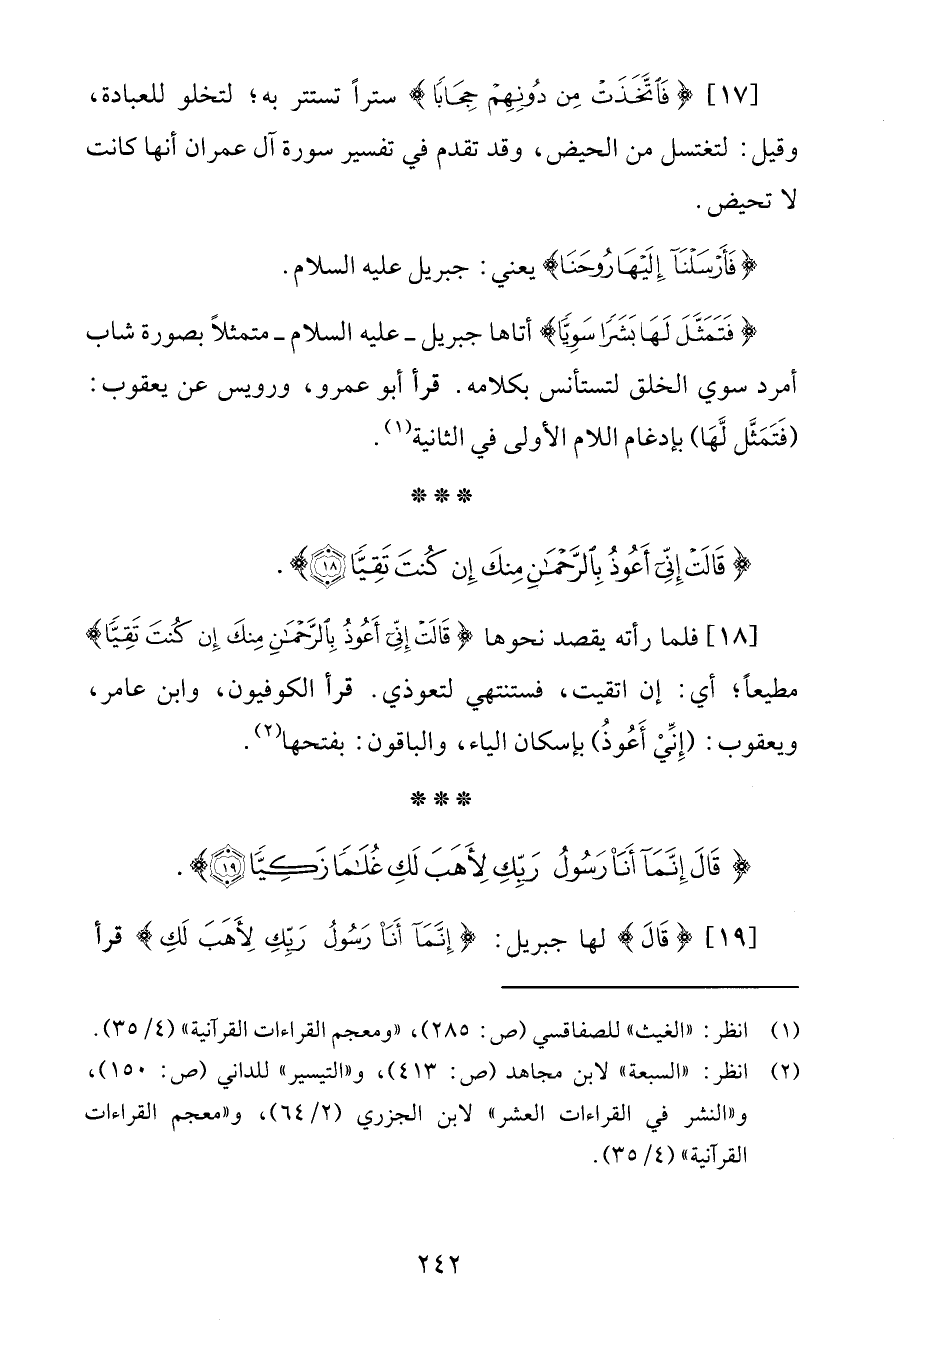 [١٧] ﴿ فَٱتَّخَذَتْ مِن دُونِهِمْ حِجَابًا ﴾ ستراً تستتر به؛ لتخلو للعبادة،
وقيل: لتغتسل من الحيض، وقد تقدم في تفسير سورة آل عمران أنها كانت
لا تحيض.
﴿ فَأَرْسَلْنَآ إِلَيْهَا رُوحَنَا﴾ يعني: جبريل عليه السلام.
﴿ فَتَمَثَّلَ لَهَا بَشَرًا سَوِيًّا﴾ أتاها جبريل ـ عليه السلام ـ متمثلاً بصورة شاب
أمرد سوي الخلق لتستأنس بكلامه. قرأ أبو عمرو، ورويس عن يعقوب:
(فَتَمَثَّل لَّهَا) بإدغام اللام الأولى في الثانية(١).
* * *
﴿ قَالَتْ إِنِّىٓ أَعُوذُ بِٱلرَّحْمَـٰنِ مِنكَ إِن كُنتَ تَقِيًّا ١٨﴾.
[١٨] فلما رأته يقصد نحوها ﴿ قَالَتْ إِنِّىٓ أَعُوذُ بِٱلرَّحْمَـٰنِ مِنكَ إِن كُنتَ تَقِيًّا ﴾
مطيعاً؛ أي: إن اتقيت، فستنتهي لتعوذي. قرأ الكوفيون، وابن عامر،
ويعقوب: (إِنِّيْ أَعُوذُ) بإسكان الياء، والباقون: بفتحها(٢).
* * *
﴿ قَالَ إِنَّمَآ أَنَا۠ رَسُولُ رَبِّكِ لِأَهَبَ لَكِ غُلَـٰمًا زَكِيًّا ١٩﴾.
[١٩] ﴿ قَالَ ﴾ لها جبريل: ﴿ إِنَّمَآ أَنَا۠ رَسُولُ رَبِّكِ لِأَهَبَ لَكِ ﴾ قرأ
(١) انظر: «الغيث» للصفاقسي (ص: ٢٨٥)، «ومعجم القراءات القرآنية» (٤/ ٣٥).
(٢) انظر: «السبعة» لابن مجاهد (ص: ٤١٣)، و«التيسير» للداني (ص: ١٥٠)،
و«النشر في القراءات العشر» لابن الجزري (٢/ ٦٤)، و«معجم القراءات
القرآنية» (٤/ ٣٥).
٢٤٢